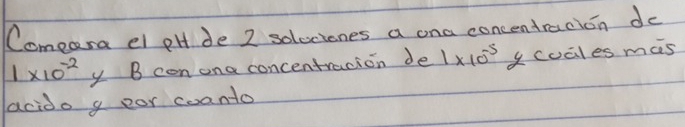 Compara el pH de 2 soluciones a una concentración de
1x10⁻² y B con una concentración de 1x10⁻⁵ y cuál es más
acido y por cuanto